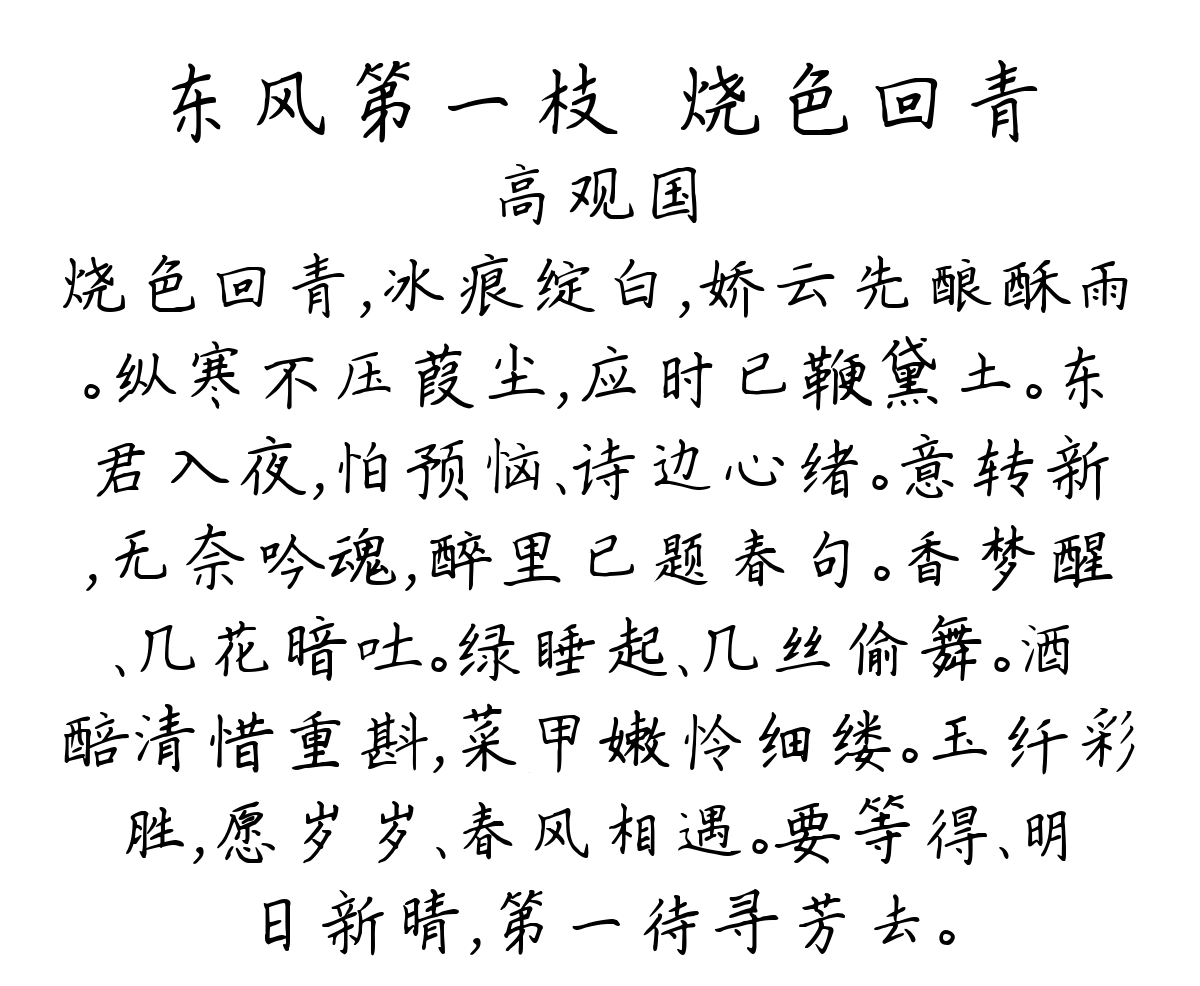 东风第一枝 烧色回青
高观国
烧色回青,冰痕绽白,娇云先酿酥雨
。纵寒不压葭尘,应时已鞭黛土。东
君入夜,怕预恼、诗边心绪。意转新
,无奈吟魂,醉里已题春句。香梦醒
、几花暗吐。绿睡起、几丝偷舞。酒
醅清惜重斟,菜甲嫩怜细缕。玉纤彩
胜,愿岁岁、春风相遇。要等得、明
日新晴,第一待寻芳去。